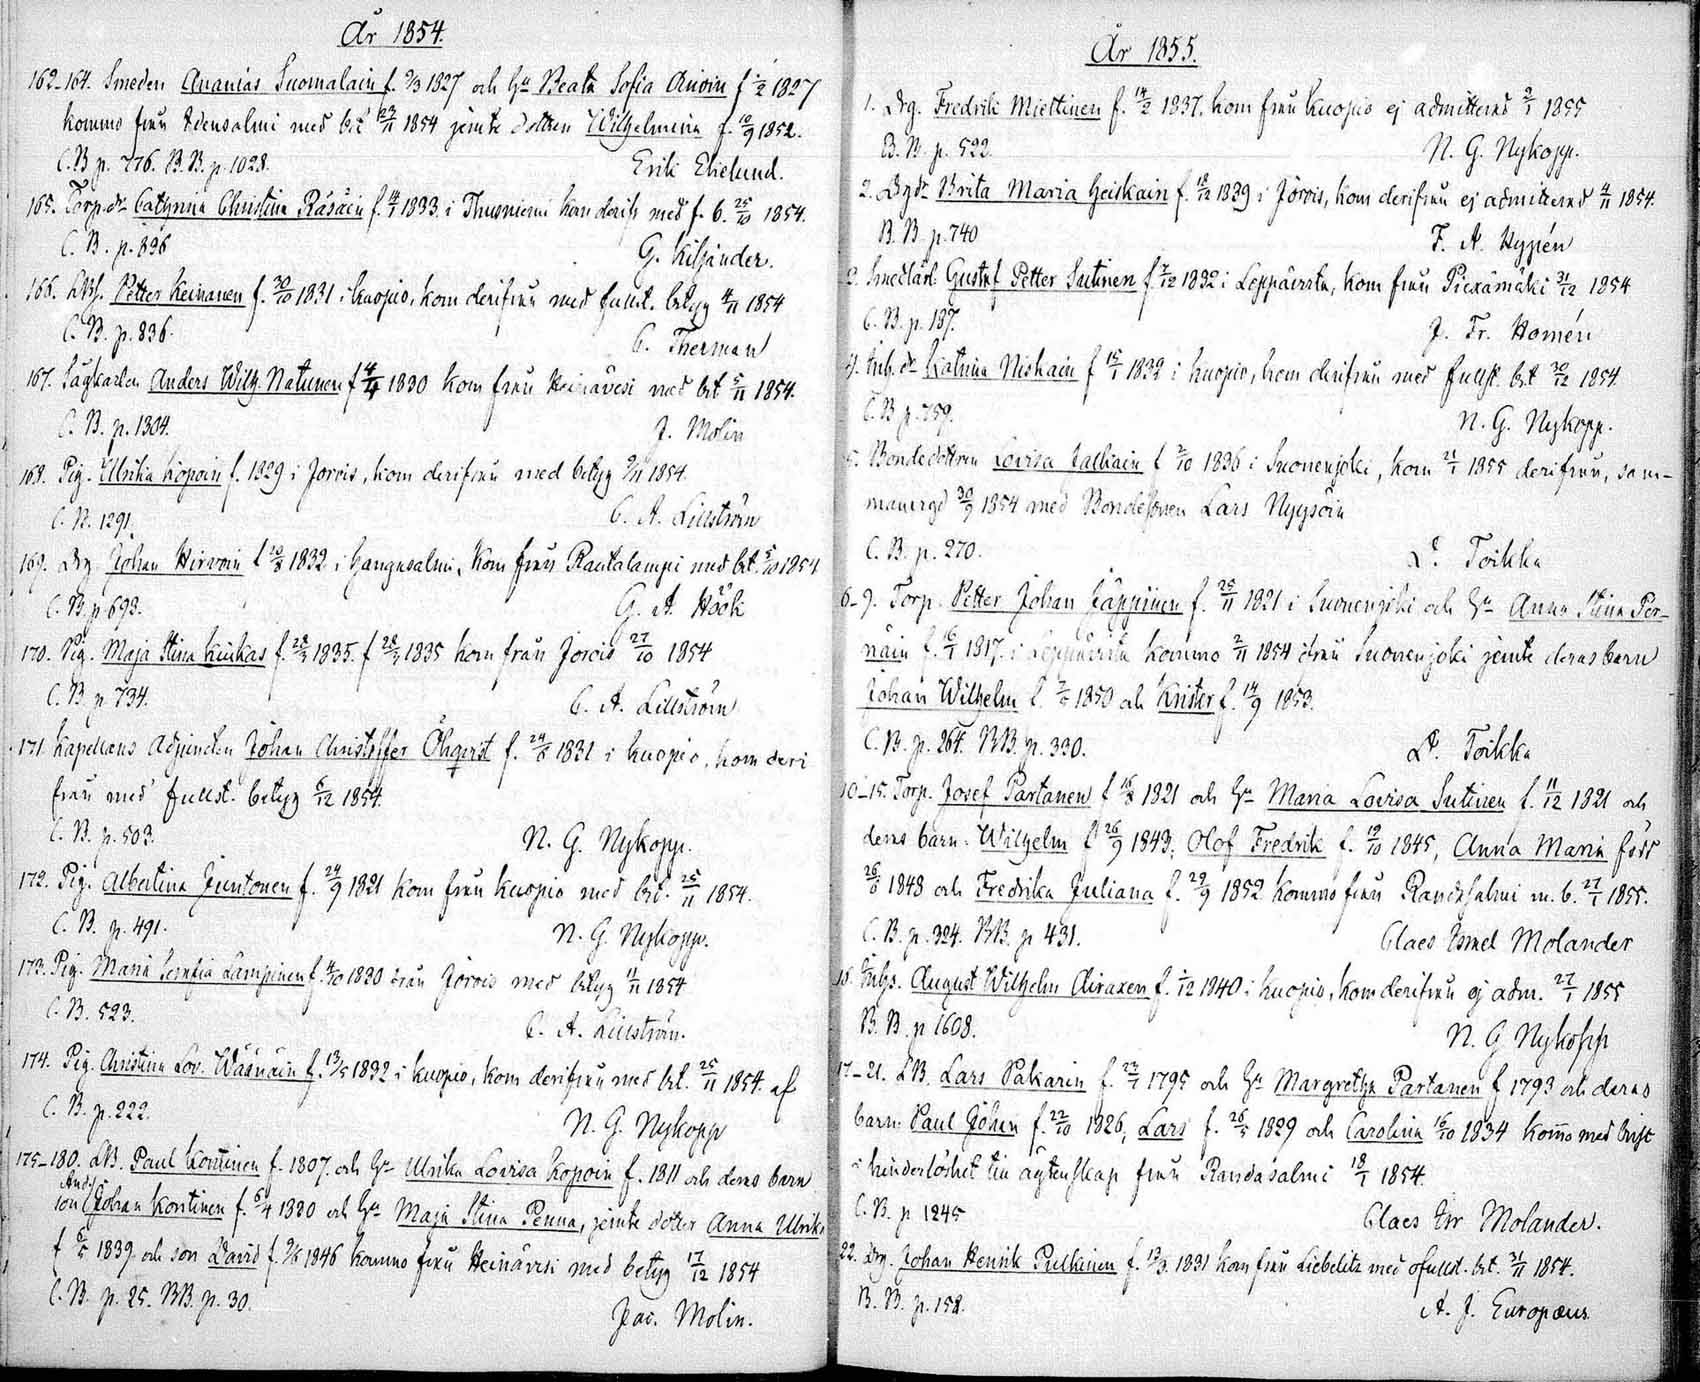 År 1854.
162-164. Smeden Ananias Suomalain f. 9/3 1827 och Hu Beata Sofia f 1/2 1827
kommo från Idensalmi med bet 1854 jemte dottren Wilhelmina f. 10/9 1852.
C.B p. 776. B.B. p. 1028. Erik Ekelund.
165. Torp.dr Cathrina Christina Räsäin f. 14/1 1833. i Thusniemi kom derifr med f. b. 25/10 1854.
C. B. p. 896 G. Kiljander.
166. Petter Keinanen f. 30/10 1831 i Kuopio, kom derifrån med fullst. betyg 4/11 1854
C. B. p. 836. C. Therman
167. Sågkarlen Anders Wilh. Natunen f 4/4 1830 kom från Heinävesi med bet 5/11 1854.
C. B. p. 1304. J. Molin
168. Pig. Ulrika Kopoin f. 1829 i Jorois, kom derifrån med betyg 9/11 1854.
C. B. 1291. C. A. Lillström
169. Drg. Johan Hirvoin f 10/8 1832 i Hangasalmi, kom från Rautalampi med bet. 5/10 1854
C. B. p. 698. G. A. Höök
170. Pig. Maja Stina Kiukas f. 1835. f 1835 kom från Jorois 27/10 1854
C. B. p. 734. C. A. Lillström
171 Kapellans Adjuncten Johan Christoffer Öhqvist f. 24/8 1831 i Kuopio, kom deri
från med fullst. betyg 6/12 1854.
C. B. p. 503. N. G. Nykopp.
172. Pig. Albertina Juntonen f. 24/9 1821 kom från Kuopio med bet. 25/11 1854.
C. B. p. 491. N. G. Nykopp.
173. Pig. Maria Serafia Lampinen f. 4/10 1830 från Jorois med betyg 11/11 1854
C. B. 523. C. A. Lillström.
174. Pig. Christina Lov. Wäänäin f. 13/5 1832 i Kuopio, kom derifrån med bet. 25/11 1854. af
C. B. p. 222. N. G. Nykopp
175-180. LB. Paul Kontinen f. 1807. och Hu Ulrika Lovisa Kopoin f. 1811 och deras barn
son Johan Kontinen f. 6/4 1830 och Hu Maja Stina Penna, jemte dotter Anna Ulrika
f 6/5 1839. och son David f. 9/6 1846 kommo från Heinävesi med betyg 17/12 1854
C. B. p. 25. BB. p. 30. Jac. Molin.
År 1855.
1. Drg. Fredrik Miettinen f. 14/2 1837. kom från Kuopio ej admitterad 2/1 1855
B. B. p. 522. N. G. Nykopp.
2. Brita Maria Heiskain f. 18/12 1839 i Jorois, kom derifrån ej admitterad 4/11 1854.
B. B p. 740 F. A. Hypén
3. Smedlärl. Gustaf Petter Sutinen f. 7/12 1832 i Leppävirta, kom från Piexämäki 31/12 1854
C. B. p. 187. J. Fr. Homén
4. Inh. dr Katrina Niskain f 15/1 1832 i Kuopio, kom derifrån med fullst. bet 30/12 1854.
C. B p. 759. N. G. Nykopp.
5. Bondedottren Lovisa Jalkain f 2/10 1836 i Suonenjoki, kom 21/1 1855 derifrån, sam-
manvigd 30/9 1854 med Bondesonen Lars Nyysöin
C. B. p. 270. Toikka
6-9. Torp. Petter Johan Jäppinen f. 25/11 1821 i Suonenjoki och Hu Anna Stina Per-
näin f. 16/1 1817. i Leppävirta kommo 2/11 1854 från Suonenjoki jemte deras barn
Johan Wilhelm f. 1850 och Krister f. 14/9 1853.
C. B. p. 264. BB. p. 330. Toikka
10-15. Torp. Josef Partanen f 16/8 1821 och Hu Maria Lovisa Sutinen f. 11/12 1821 och
deras barn: Wilhelm f 26/9 1843; Olof Fredrik f. 19/10 1845, Anna Maria född
26/6 1848 och Fredrika Juliana f. 29/9 1852 kommo från Randasalmi m. b. 27/1 1855.
C. B. p. 324. BB. p 431. Claes Molander
16. Inhys. August Wilhelm Airaxen f. 1/12 1840 i Kuopio, kom derifrån ej adm. 27/1 1855
B. B. p 1608. N. G Nykopp
17-21. LB. Lars Pakarin f. 1795 och Hu Margretha Partanen f 1793 och deras
barn Paul Johan f. 22/10 1826, Lars f. 26/5 1829 och Carolina 16/10 1834 kom̄o med brist
i hinderlöshet till ägtenskap från Randasalmi 18/1 1854.
C. B. p 1245 Claes Molander.
22. Drg. Johan Henrik Pulkinen f. 13/3 1831 kom från Libelits med ofullst. bet. 21/11 1854.
B. B. p. 158. A. J. Europæus